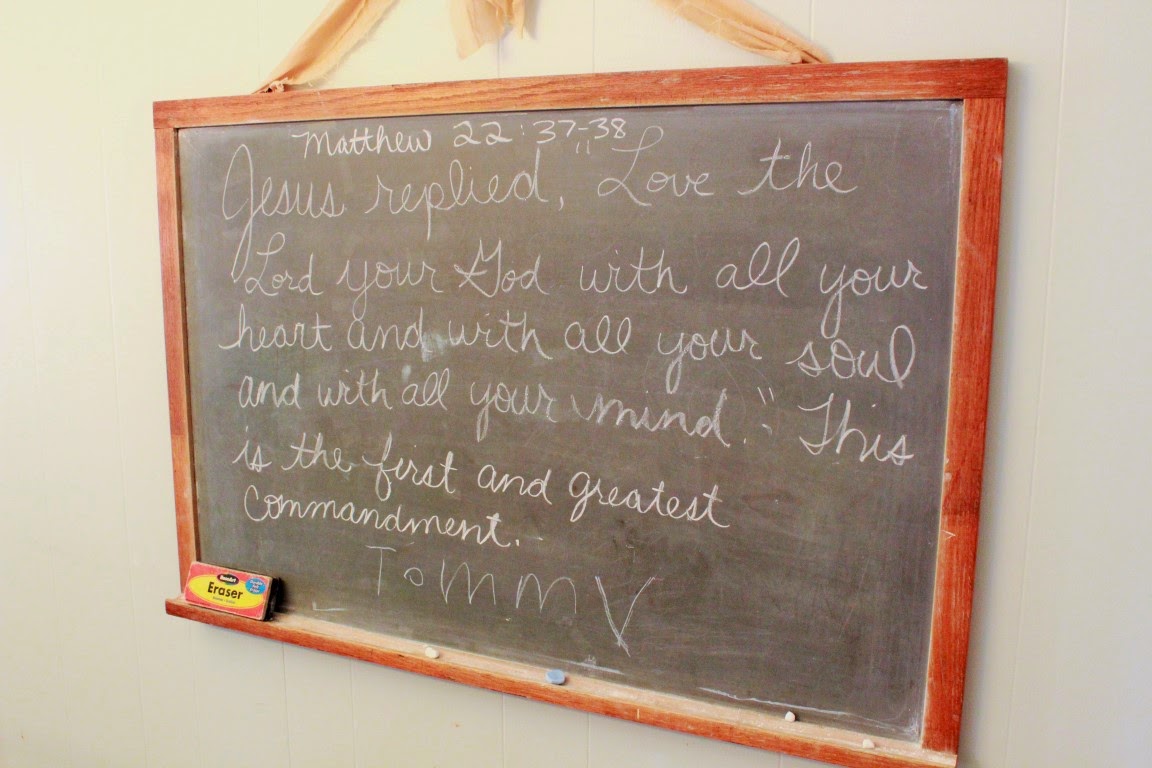 Matthew 22:37-38
Jesus replied, "Love the
Lord your God with all your
heart and with all your soul
and with all your mind." This
is the first and greatest
Commandment.
TommY
Eraser